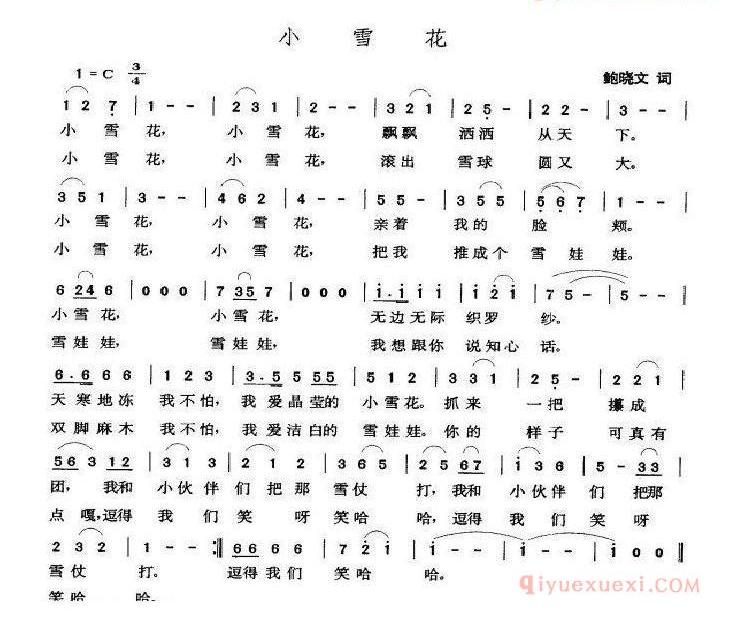 小 雪 花
1=C 3/4 鲍晓文 词
1 2 7 | 1 - - | 2 3 1 | 2 - - | 3 2 1 | 2 5 - | 2 2 - | 3 - - |
小 雪 花, 小 雪 花, 飘飘 洒洒 从天 下。
小 雪 花, 小 雪 花, 滚出 雪球 圆又 大。
3 5 1 | 3 - - | 4 6 2 | 4 - - | 5 5 - | 3 5 5 | 5 6 7 | 1 - - |
小 雪 花, 小 雪 花, 亲着 我的 脸 颊。
小 雪 花, 小 雪 花, 把我 推成个 雪娃 娃。
6 2 4 6 | 0 0 0 | 7 3 5 7 | 0 0 0 | i . i i i | i 2 i | 7 5 - | 5 - - |
小雪花, 小雪花, 无边无际 织罗 纱。
雪娃娃, 雪娃娃, 我想跟你 说知心 话。
6 . 6 6 6 | 1 2 3 | 3 . 5 5 5 5 | 5 1 2 | 3 3 1 | 2 5 - | 2 2 1 |
天寒地冻 我不怕, 我 爱晶莹的 小雪花。 抓来 一把 攥成
双脚麻木 我不怕, 我 爱洁白的 雪娃娃。 你的 样子 可真有
5 6 3 1 2 | 3 1 3 | 2 1 2 | 3 6 5 | 2 5 6 7 | i 3 6 | 5 - 3 3 |
团, 我和 小伙伴 们把那 雪仗 打, 我和 小伙伴 们 把那
点嘎, 逗得 我 们 笑 呀 笑哈 哈, 逗得 我 们 笑 呀
2 3 2 | 1 - - :| 6 6 6 6 | 7 2 i | i - - | i - - | i 0 0 ||
雪仗 打。 逗得我们 笑哈 哈。
笑哈 哈。
qiyuexuexi.COM